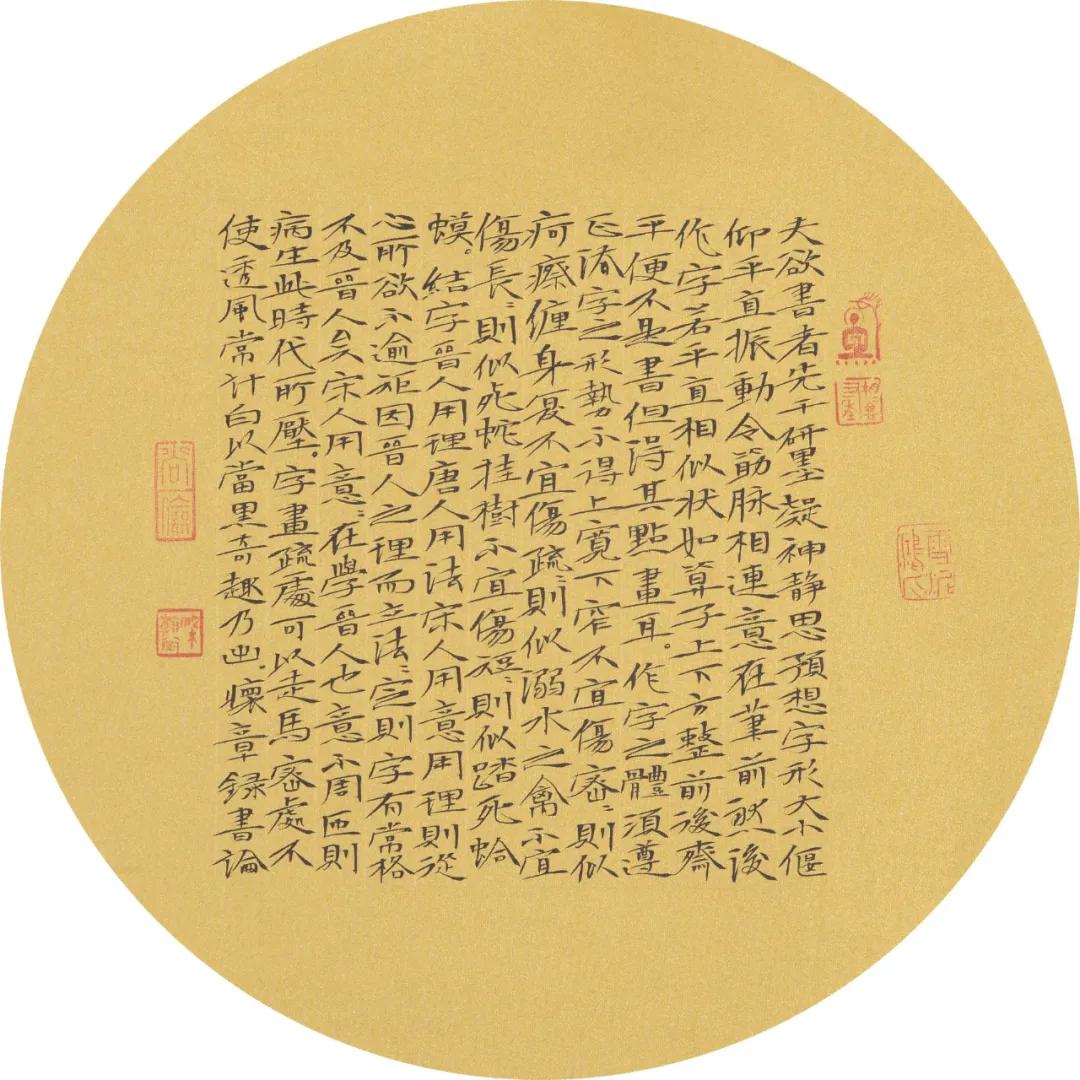 夫欲書者先干研墨凝神静思預想字形大小偃
仰平直振動令筋脉相連意在筆前然後
作字若平直相似状如筭子上下方整前後齊
平便不是書但得其點畫耳。作字之體須遵
正法字之形勢不得上寬下窄不宜傷密;則似
疴瘵纏身复不宜傷疏;則似溺水之禽不宜
傷長;則似死蛇挂樹不宜傷短;則似踏死蛤
蟆。結字晉人用理唐人用法宋人用意用理則從
心所欲不逾矩因晉人之理而立法;定則字有常格
不及晉人矣宋人用意;在學晉人也意不周匝則
病生此時代所壓。字畫疏處可以走馬密處不
使透風常计白以當黑奇趣乃出。懷章録書論